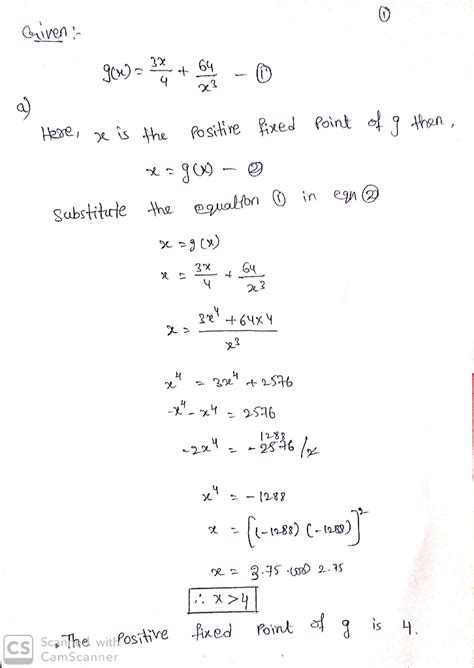 ①
Given :-
g(x) = 3x/4 + 64/x³ - ①
a)
Here, x is the Positive fixed Point of g then,
x = g(x) - ②
Substitute the equation ① in eqn ②
x = g(x)
x = 3x/4 + 64/x³
x = (3x⁴ + 64x4)/x³
x⁴ = 3x⁴ + 2576
-x⁴ - x⁴ = 2576
1288
-2x⁴ = -2576/2
x⁴ = -1288
x = [(-1288) (-1288)]²
x = 3.75 2.75
∴ x>4
The Positive fixed Point of g is 4.
CS Scanned with
CamScanner